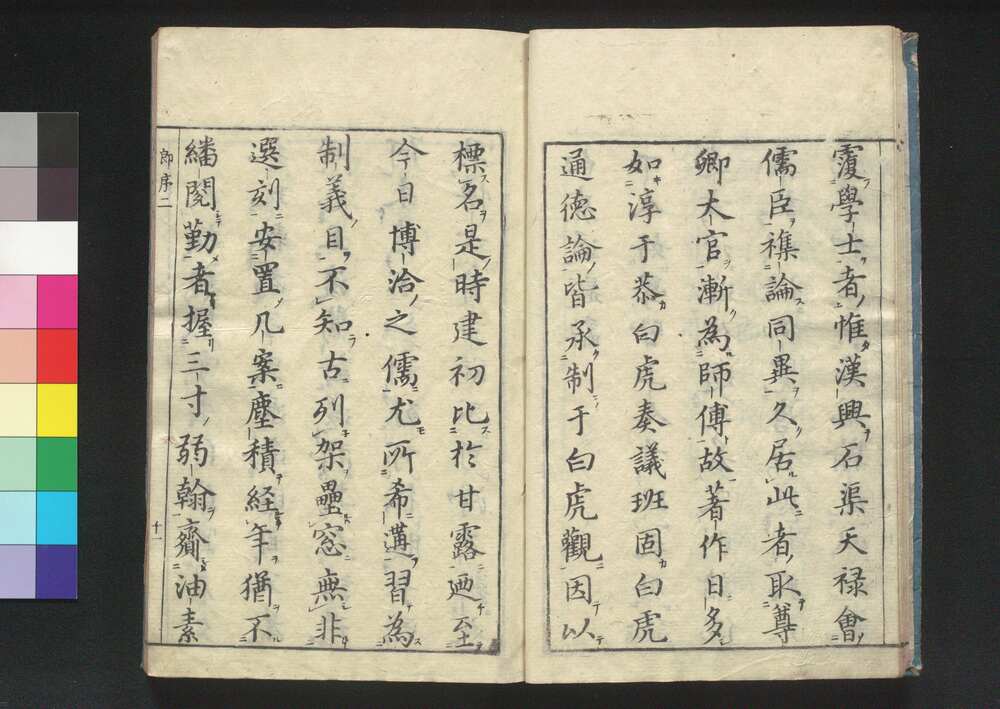 覆學士者惟漢興石渠天禄會
儒臣襍論同異久居此者取尊
卿大官漸為師傅故著作日多
如淳于恭白虎奏議班固白虎
通徳論皆承制于白虎觀因以
標名是時建初比於甘露迺至
今日博洽之儒尤所希遘習為
制義目不知古列架壘窓無非
選刻安置几案塵積経年猶不
繙閱勤者握三寸弱翰齎油素
郎序二
十一